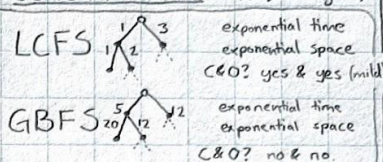 LCFS 1 3 1 2 exponential time
exponential space
C&O? yes & yes (mild
GBFS 5 12 20 12 exponential time
exponential space
C&O? no & no.